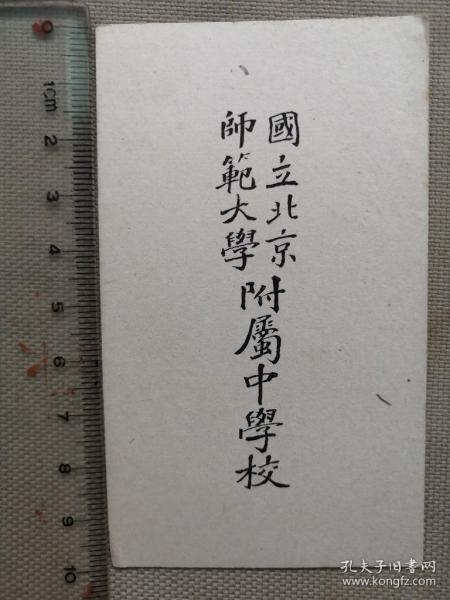 國立北京
師範大學
附屬中學校
0 1cm 2 3 4 5 6 7 8 9 10
孔夫子旧书网
www.kongfz.com